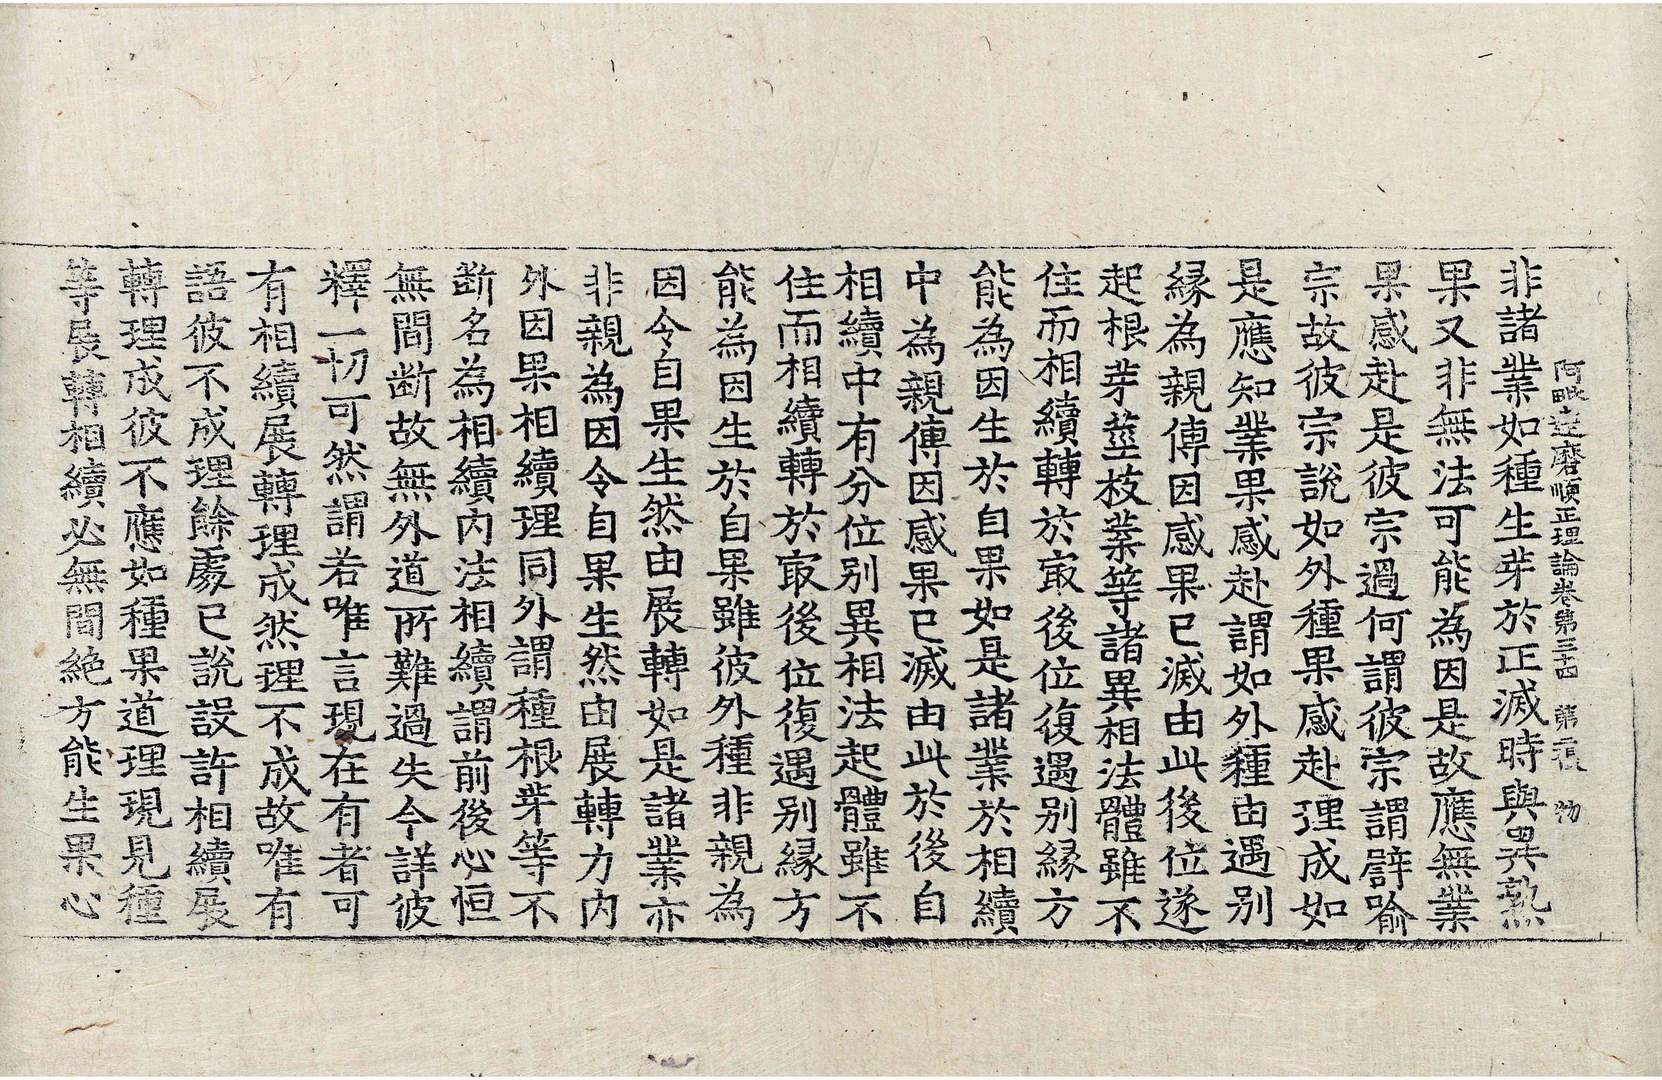 阿毗達磨順正理論卷第三十四 第二張 物
非諸業如種生芽於正滅時與異熟
果又非無法可能為因是故應無業
果感赴是彼宗過何謂彼宗謂譬喻
宗故彼宗說如外種果感赴理成如
是應知業果感赴謂如外種由遇別
緣為親傳因感果已滅由此後位遂
起根芽莖枝葉等諸異相法體雖不
住而相續轉於㝡後位復遇別緣方
能為因生於自果如是諸業於相續
中為親傳因感果已滅由此於後自
相續中有分位別異相法起體雖不
住而相續轉於㝡後位復遇別緣方
能為因生於自果雖彼外種非親為
因令自果生然由展轉如是諸業亦
非親為因令自果生然由展轉力內
外因果相續理同外謂種根芽等不
断名為相續內法相續謂前後心恒
無間断故無外道所難過失今詳彼
釋一切可然謂若唯言現在有者可
有相續展轉理成然理不成故唯有
語彼不成理餘處已說設許相續展
轉理成彼不應如種果道理現見種
等展轉相續必無間絕方能生果心